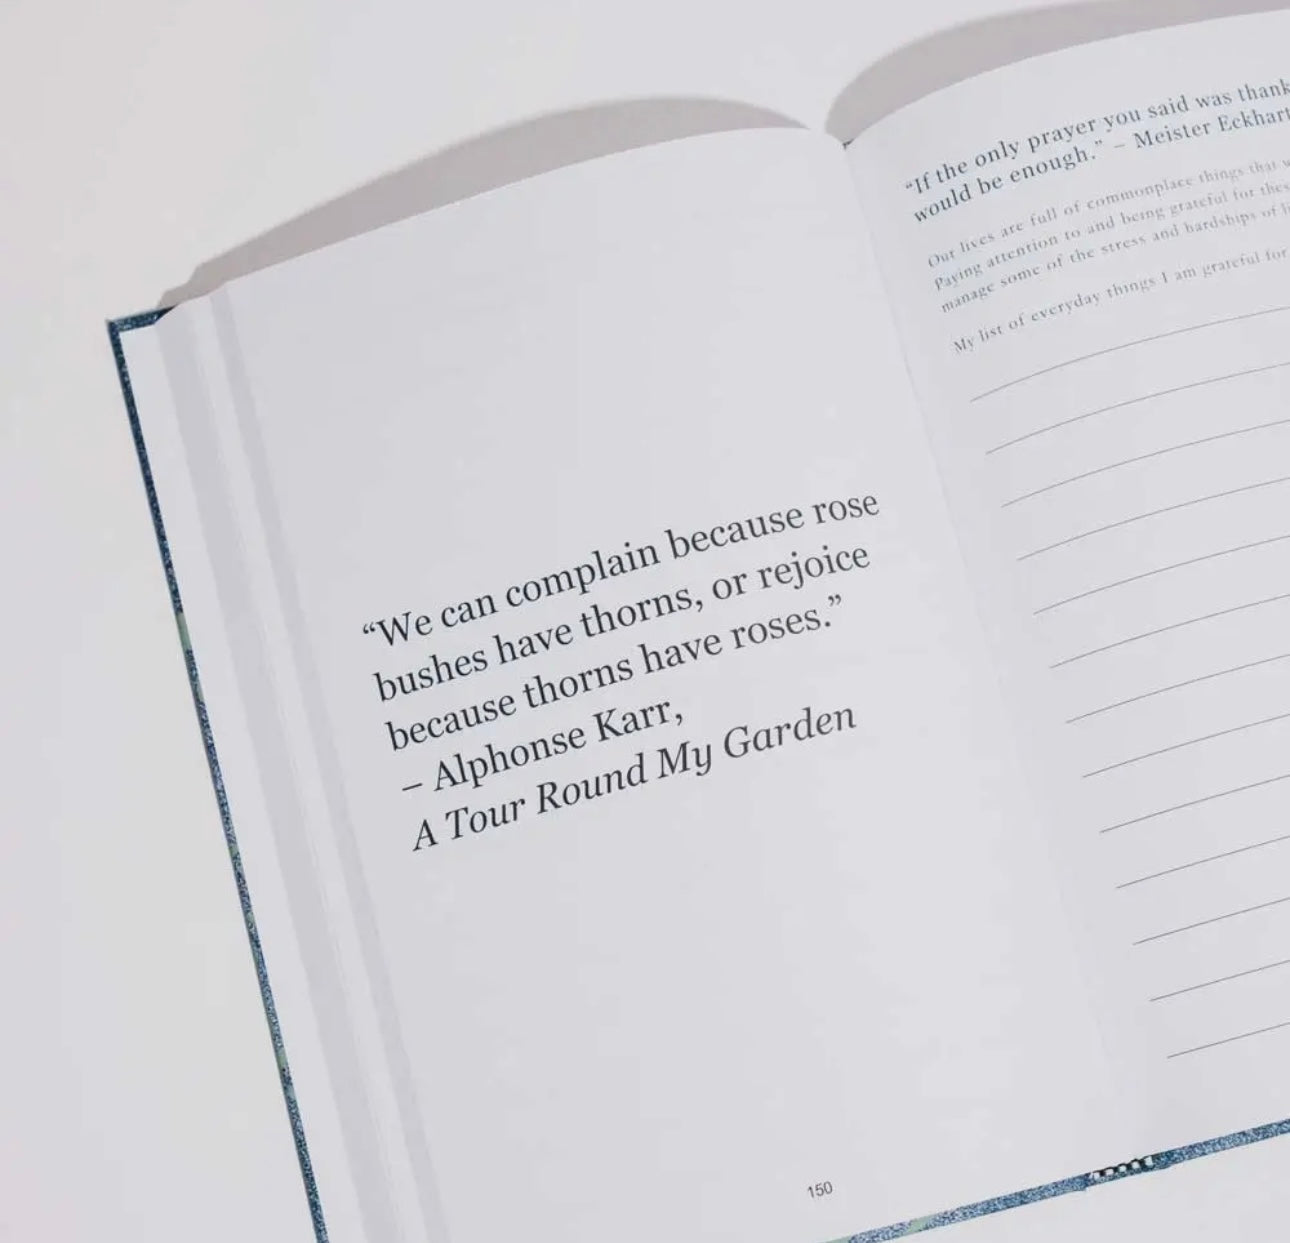 “We can complain because rose
bushes have thorns, or rejoice
because thorns have roses.”
– Alphonse Karr,
A Tour Round My Garden
150
“If the only prayer you said was thank
would be enough.” – Meister Eckhart
Our lives are full of commonplace things that
Paying attention to and being grateful for
manage some of the stress and hardships of
My list of everyday things I am grateful for